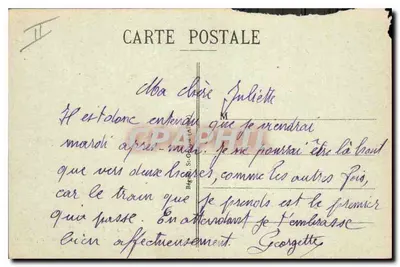 II
CARTE POSTALE
Ma chère Juliette
M
Il est donc entendu que je viendrai
mardi après midi. Je ne pourrai être là haut
que vers deux heures, comme les autres fois,
car le train que je prends est le premier
qui passe. En attendant je t'embrasse
bien affectueusement. Georgette